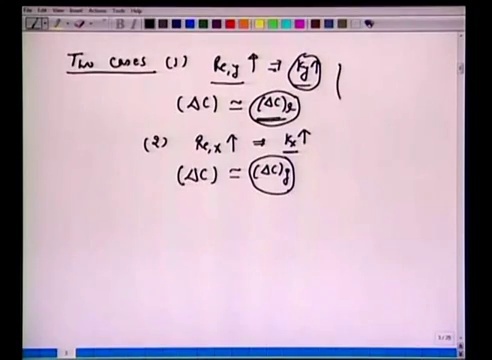 File Edit View Insert Actions Tools Help
Two cases (1) Re,y ↑ ⇒ ky ↑
(ΔC) ≃ (ΔC)x
(2) Re,x ↑ ⇒ kx ↑
(ΔC) ≃ (ΔC)y